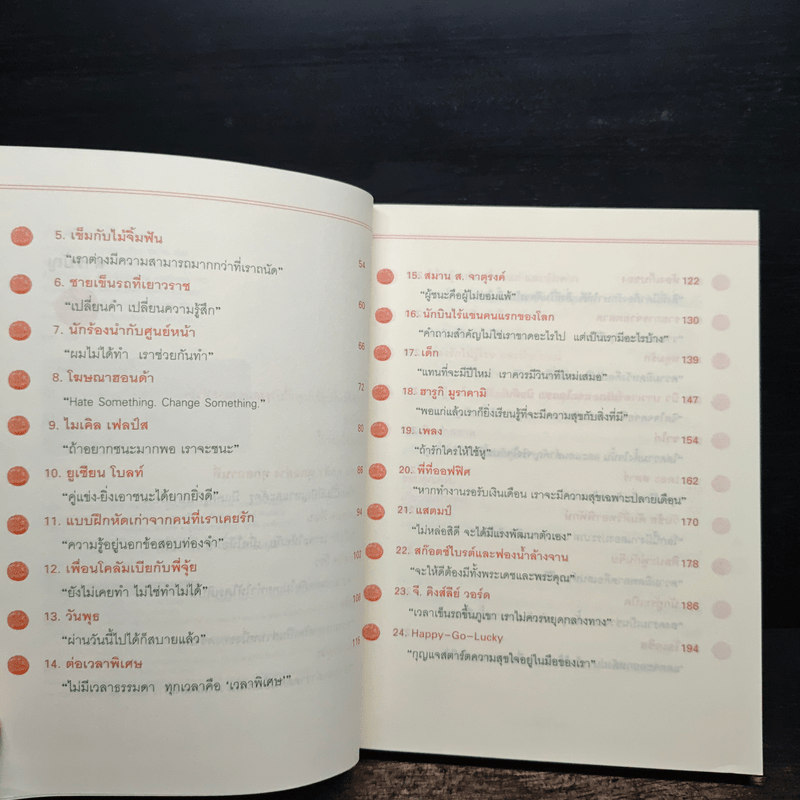 5. เข็มกับไม้จิ้มฟัน
"เราต่างมีความสามารถมากกว่าที่เราถนัด" 54
6. ชายเข็นรถที่เยาวราช
"เปลี่ยนคำ เปลี่ยนความรู้สึก" 60
7. นักร้องนำกับศูนย์หน้า
"ผมไม่ได้ทำ เราช่วยกันทำ" 66
8. โฆษณาฮอนด้า 72
"Hate Something. Change Something."
9. ไมเคิล เฟลป์ส 80
"ถ้าอยากชนะมากพอ เราจะชนะ"
10. ยูเซียน โบลท์ 86
"คู่แข่ง-ยิ่งเอาชนะได้ยากยิ่งดี"
11. แบบฝึกหัดเก่าจากคนที่เราเคยรัก 94
"ความรู้อยู่นอกข้อสอบท่องจำ"
12. เพื่อนโคลัมเบียกับพี่จุ้ย 102
"ยังไม่เคยทำ ไม่ใช่ทำไม่ได้"
13. วันพุธ 108
"ผ่านวันนี้ไปได้ก็สบายแล้ว"
14. ต่อเวลาพิเศษ 116
"ไม่มีเวลาธรรมดา ทุกเวลาคือ 'เวลาพิเศษ'"
15. สมาน ส. จาตุรงค์ 122
"ผู้ชนะคือผู้ไม่ยอมแพ้"
16. นักบินไร้แขนคนแรกของโลก 130
"คำถามสำคัญไม่ใช่เราขาดอะไรไป แต่เป็นเรามีอะไรบ้าง"
17. เด็ก 139
"แทนที่จะมีปีใหม่ เราควรมีวินาทีใหม่เสมอ"
18. ฮารูกิ มูราคามิ 147
"พอแก่แล้วเราก็ยิ่งเรียนรู้ที่จะมีความสุขกับสิ่งที่มี"
19. เพลง 154
"ถ้ารักใครให้ใช้หู"
20. พี่ที่ออฟฟิศ 162
"หากทำงานรอรับเงินเดือน เราจะมีความสุขเฉพาะปลายเดือน"
21. แสตมป์ 170
"ไม่หล่อสิดี จะได้มีแรงพัฒนาตัวเอง"
22. สก๊อตช์ไบรต์และฟองน้ำล้างจาน 178
"จะให้ดีต้องมีทั้งพระเดชและพระคุณ"
23. จี. คิงส์ลีย์ วอร์ด 186
"เวลาเข็นรถขึ้นภูเขา เราไม่ควรหยุดกลางทาง"
24. Happy-Go-Lucky 194
"กุญแจสตาร์ตความสุขใจอยู่ในมือของเรา"